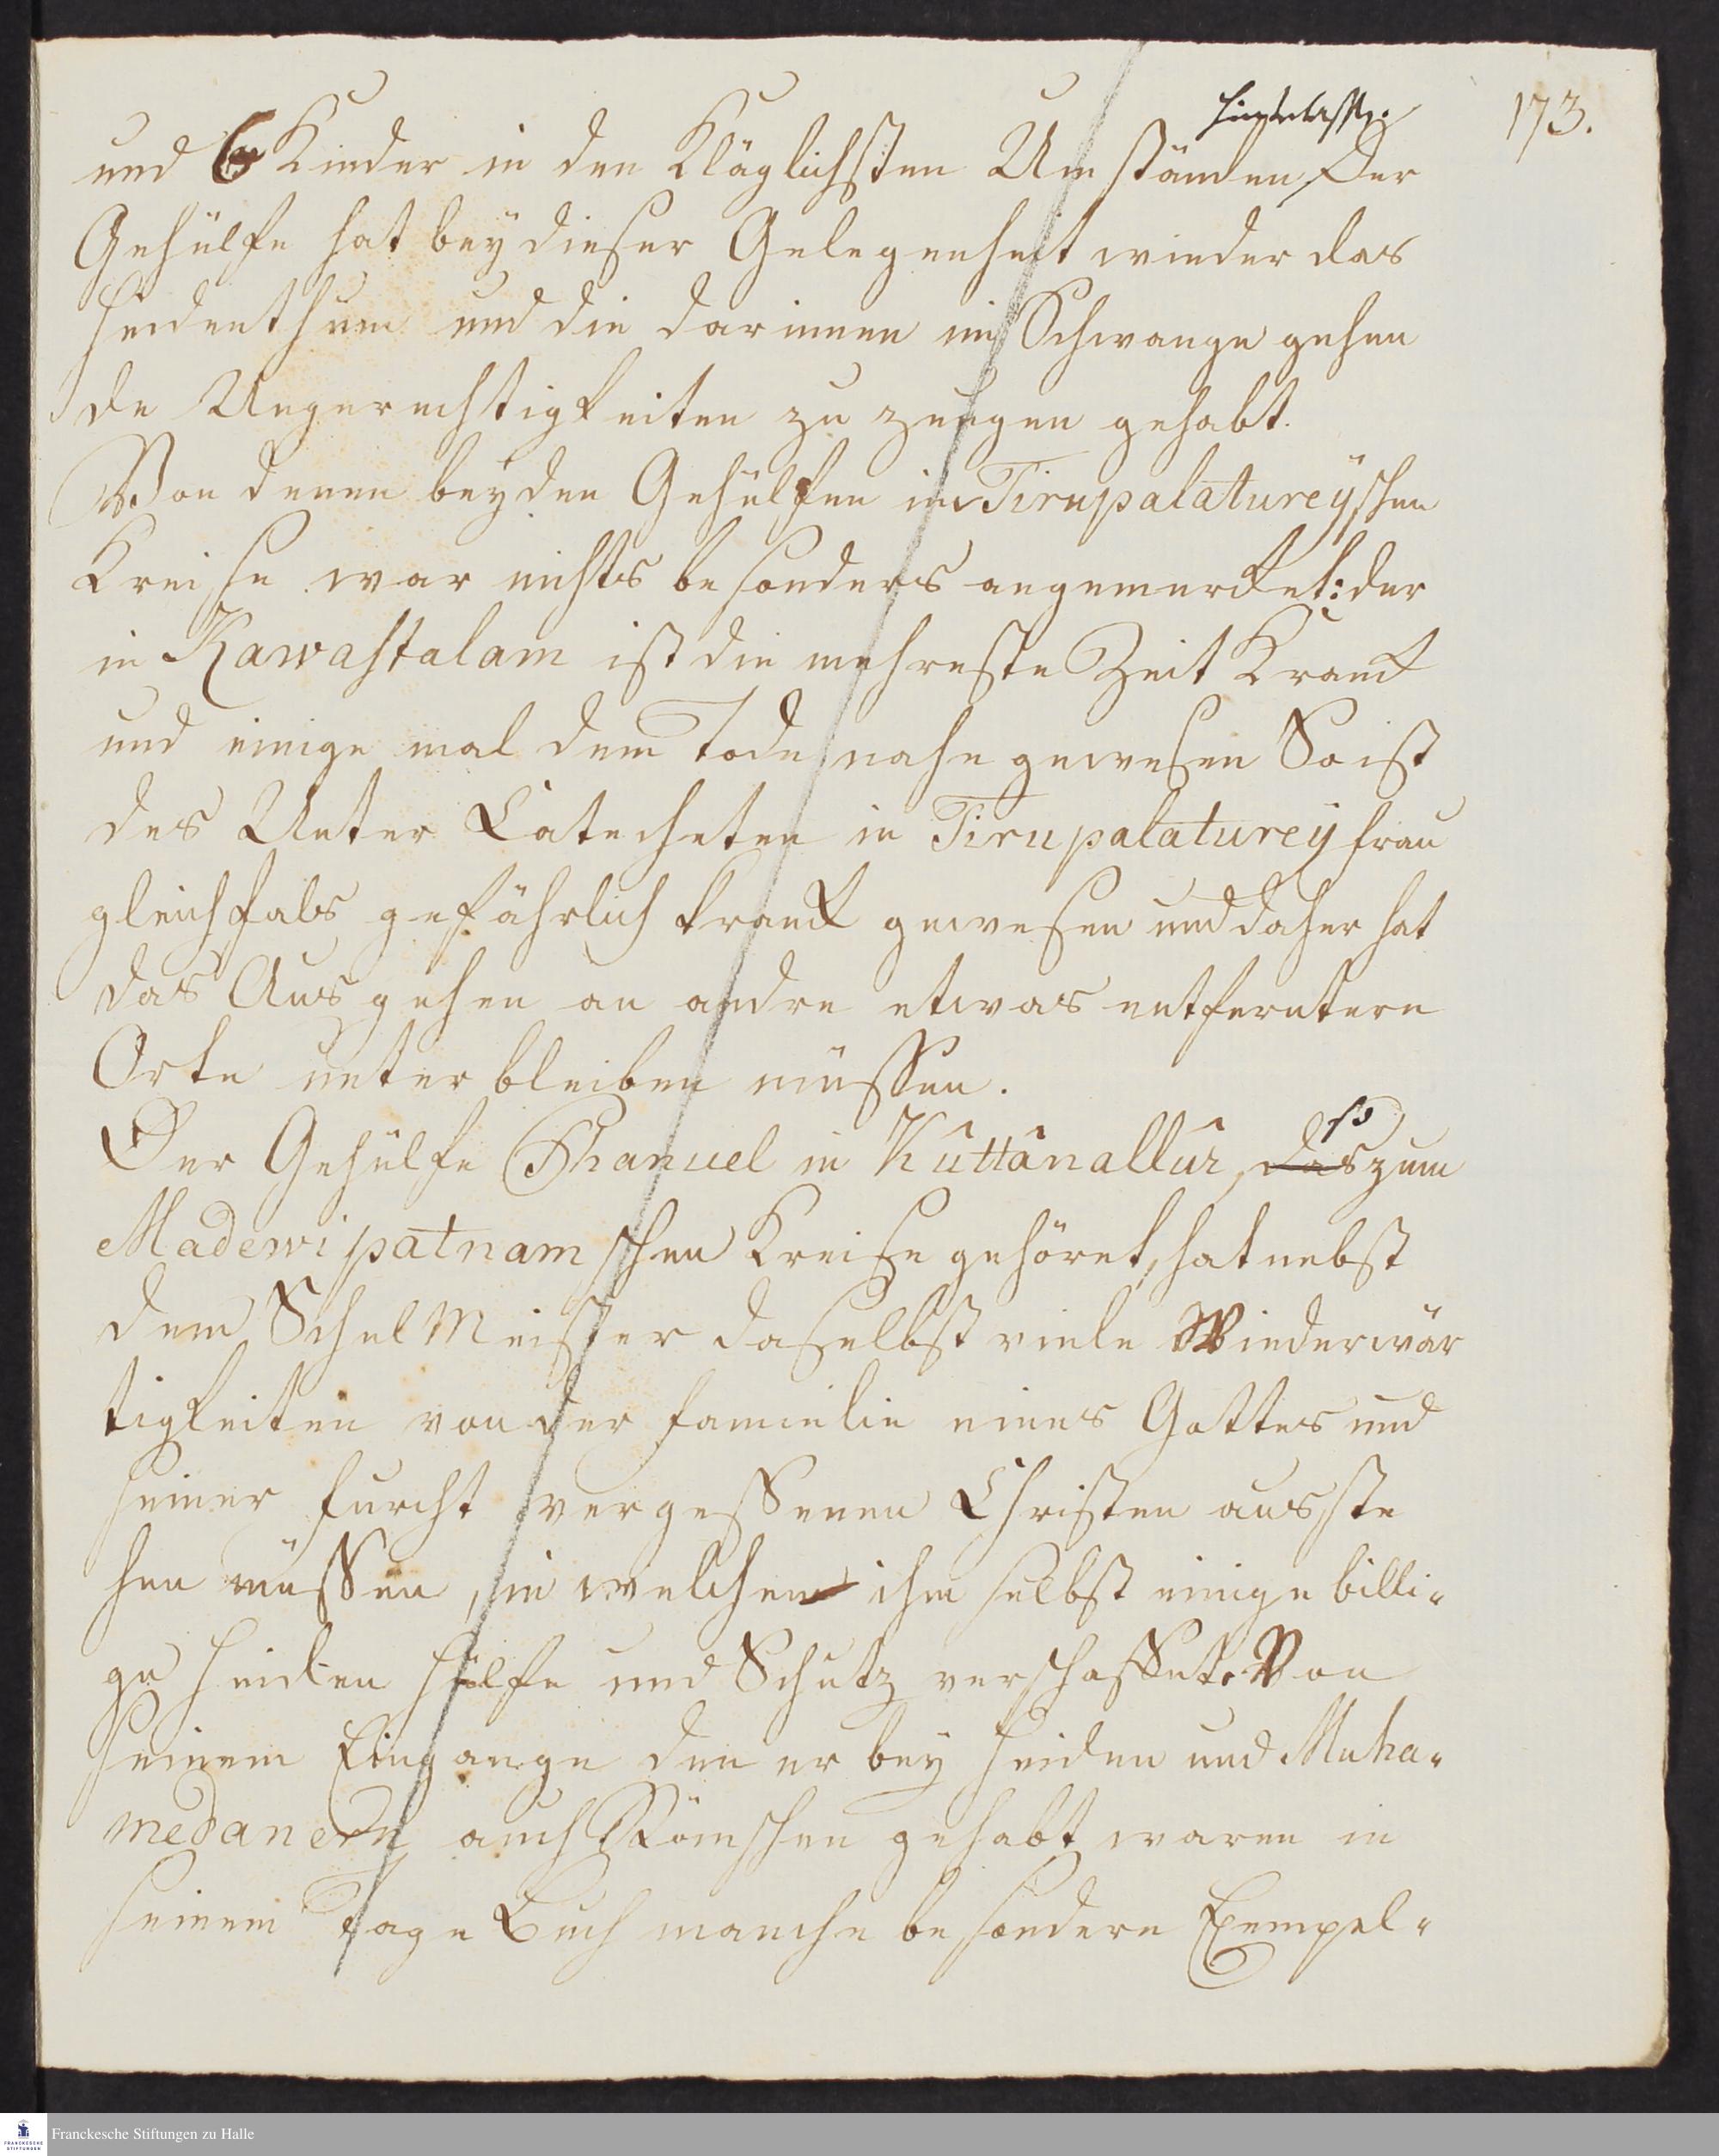 173.
hinterlassen.
und 6 Kinder in den Kläglichsten Umständen Der
Gehülfe hat bey dieser Gelegenheit wieder das
Heidenthum und die darinnen im Schwange gehen
de Ungerechtigkeiten zu zeugen gehabt.
Von denen beyden Gehülfen im Tirupalatureyschen
Kreise war nichts besonders angemercket: der
in Kawastalam ist die mehreste Zeit Kranck
und einige mal dem Tode nahe gewesen So ist
des Unter Catecheten in Tirupalaturey frau
gleichfals gefährlich kranck gewesen und daher hat
das Ausgehen an andre etwas entferntere
Orte unterbleiben müssen.
so
Der Gehülfe Phanuel in Kûttânallûr, das zum
Madewipatnamschen Kreise gehöret, hat nebst
dem Schulmeister daselbst viele Wiederwär
tigkeiten von der familie eines Gottes und
seiner furcht vergessenen Christen ausste
hen müssen, in welchen ihm selbst einige billi-
ge Heiden Hülfe und Schutz verschaffet. Von
seinem Eingange den er bey Heiden und Muha-
medanern auch Römschen gehabt waren in
seinem Tage Buch manche besondere Exempel-
Franckesche Stiftungen zu Halle
FRANCKESCHE STIFTUNGEN